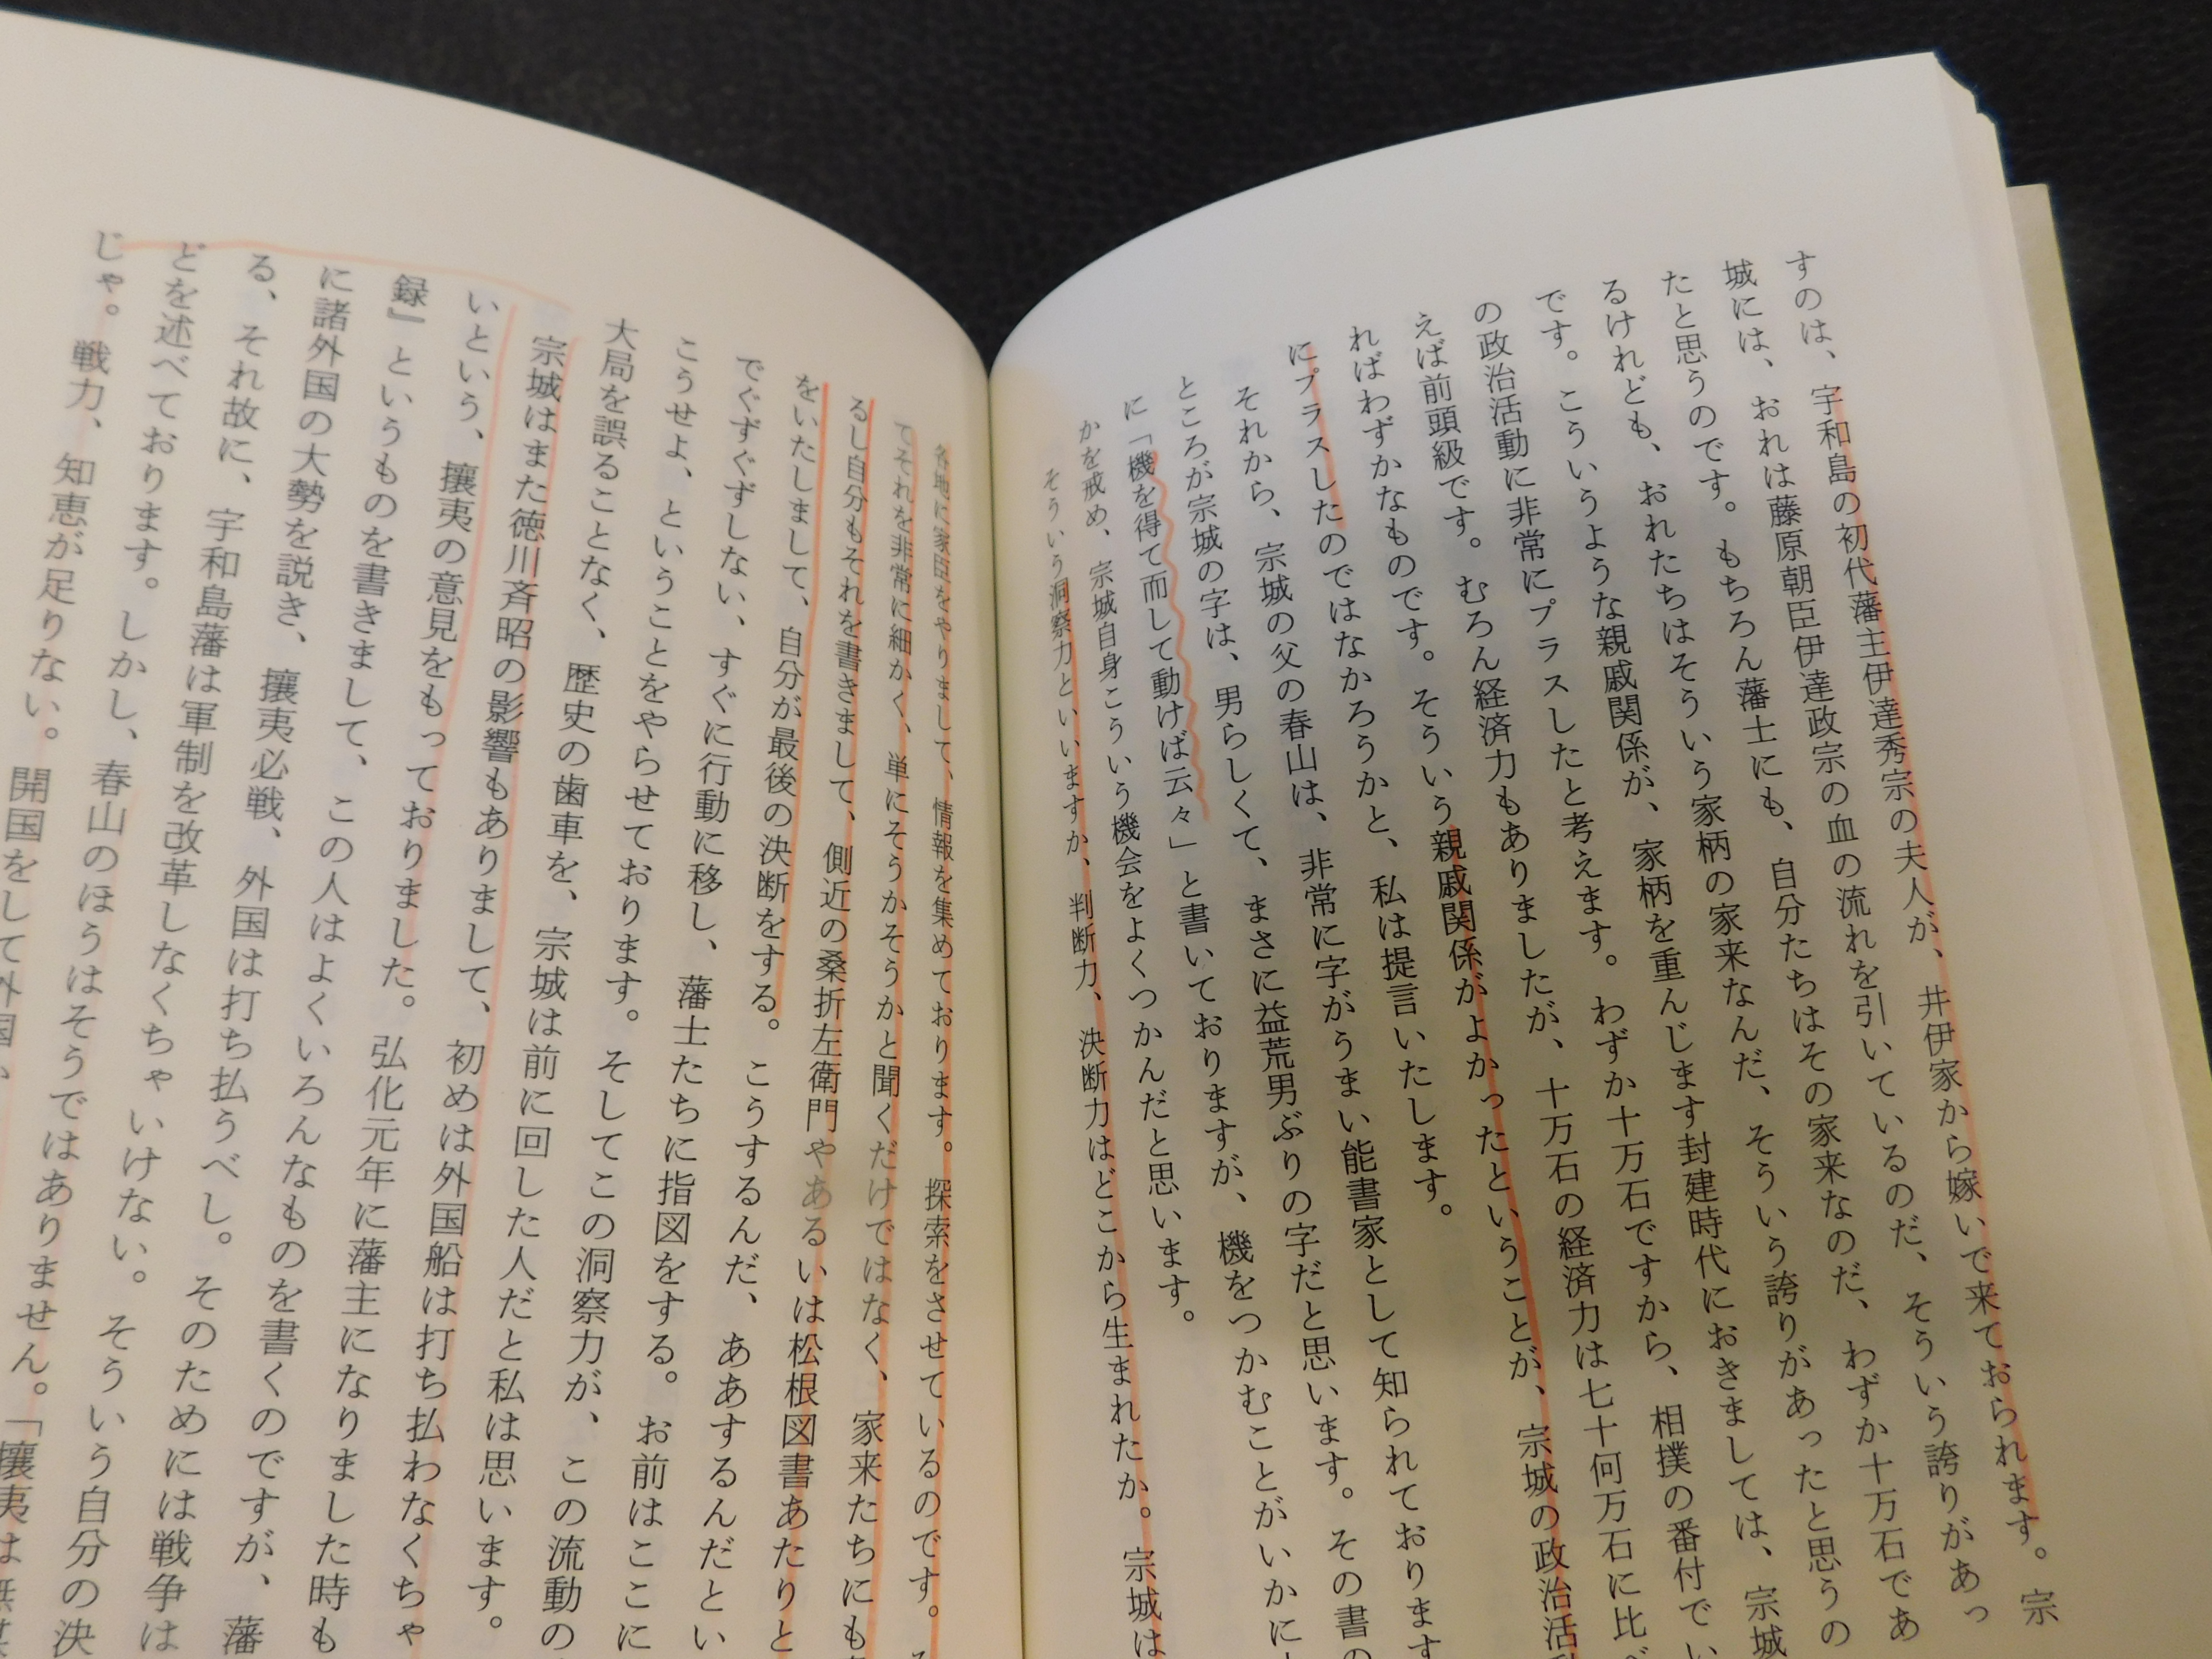 すのは、宇和島の初代藩主伊達秀宗の夫人が、井伊家から嫁いで来ておられます。宗
城には、おれは藤原朝臣伊達政宗の血の流れを引いているのだ、そういう誇りがあっ
たと思うのです。もちろん藩士にも、自分たちはその家来なのだ、わずか十万石であ
るけれども、おれたちはそういう家柄の家来なんだ、そういう誇りがあったと思うの
です。こういうような親戚関係が、家柄を重んじます封建時代におきましては、宗城
の政治活動に非常にプラスしたと考えます。わずか十万石ですから、相撲の番付でい
えば前頭級です。むろん経済力もありましたが、十万石の経済力は七十何万石に比べ
ればわずかなものです。そういう親戚関係がよかったということが、宗城の政治活動
にプラスしたのではなかろうかと、私は提言いたします。
それから、宗城の父の春山は、非常に字がうまい能書家として知られております
ところが宗城の字は、男らしくて、まさに益荒男ぶりの字だと思います。その書の
に「機を得て而して動けば云々」と書いておりますが、機をつかむことがいかに
かを戒め、宗城自身こういう機会をよくつかんだと思います。
そういう洞察力といいますか、判断力、決断力はどこから生まれたか。宗城は
各地に家臣をやりまして、情報を集めております。探索をさせているのです。
てそれを非常に細かく、単にそうかそうかと聞くだけではなく、家来たちにも
るし自分もそれを書きまして、側近の桑折左衛門やあるいは松根図書あたりと
をいたしまして、自分が最後の決断をする。こうするんだ、ああするんだとい
でぐずぐずしない、すぐに行動に移し、藩士たちに指図をする。お前はここに
こうせよ、ということをやらせております。そしてこの洞察力が、この流動の
大局を誤ることなく、歴史の歯車を、宗城は前に回した人だと私は思います。
宗城はまた徳川斉昭の影響もありまして、初めは外国船は打ち払わなくちゃ
いという、攘夷の意見をもっておりました。弘化元年に藩主になりました時も
録』というものを書きまして、この人はよくいろんなものを書くのですが、藩
に諸外国の大勢を説き、攘夷必戦、外国は打ち払うべし。そのためには戦争は
る、それ故に、宇和島藩は軍制を改革しなくちゃいけない。そういう自分の決
どを述べております。しかし、春山のほうはそうではありません。「攘夷は無謀
じゃ。戦力、知恵が足りない。開国をして外国